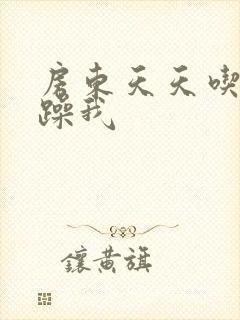 房東天天喫
躁我
鑲黃旗